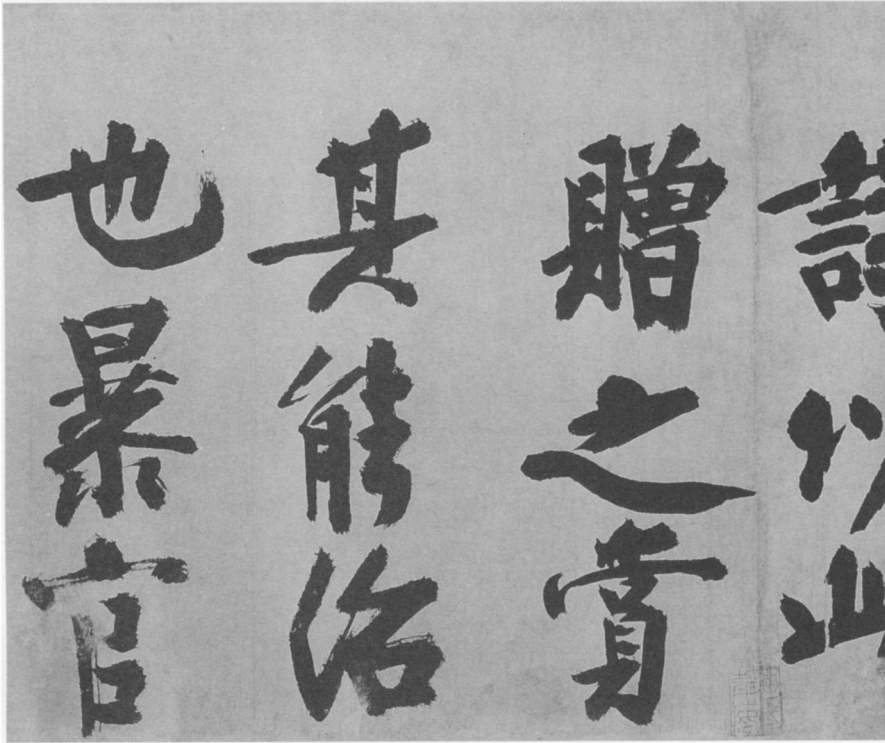 詩以此
贈之賞
其能治
也暴官